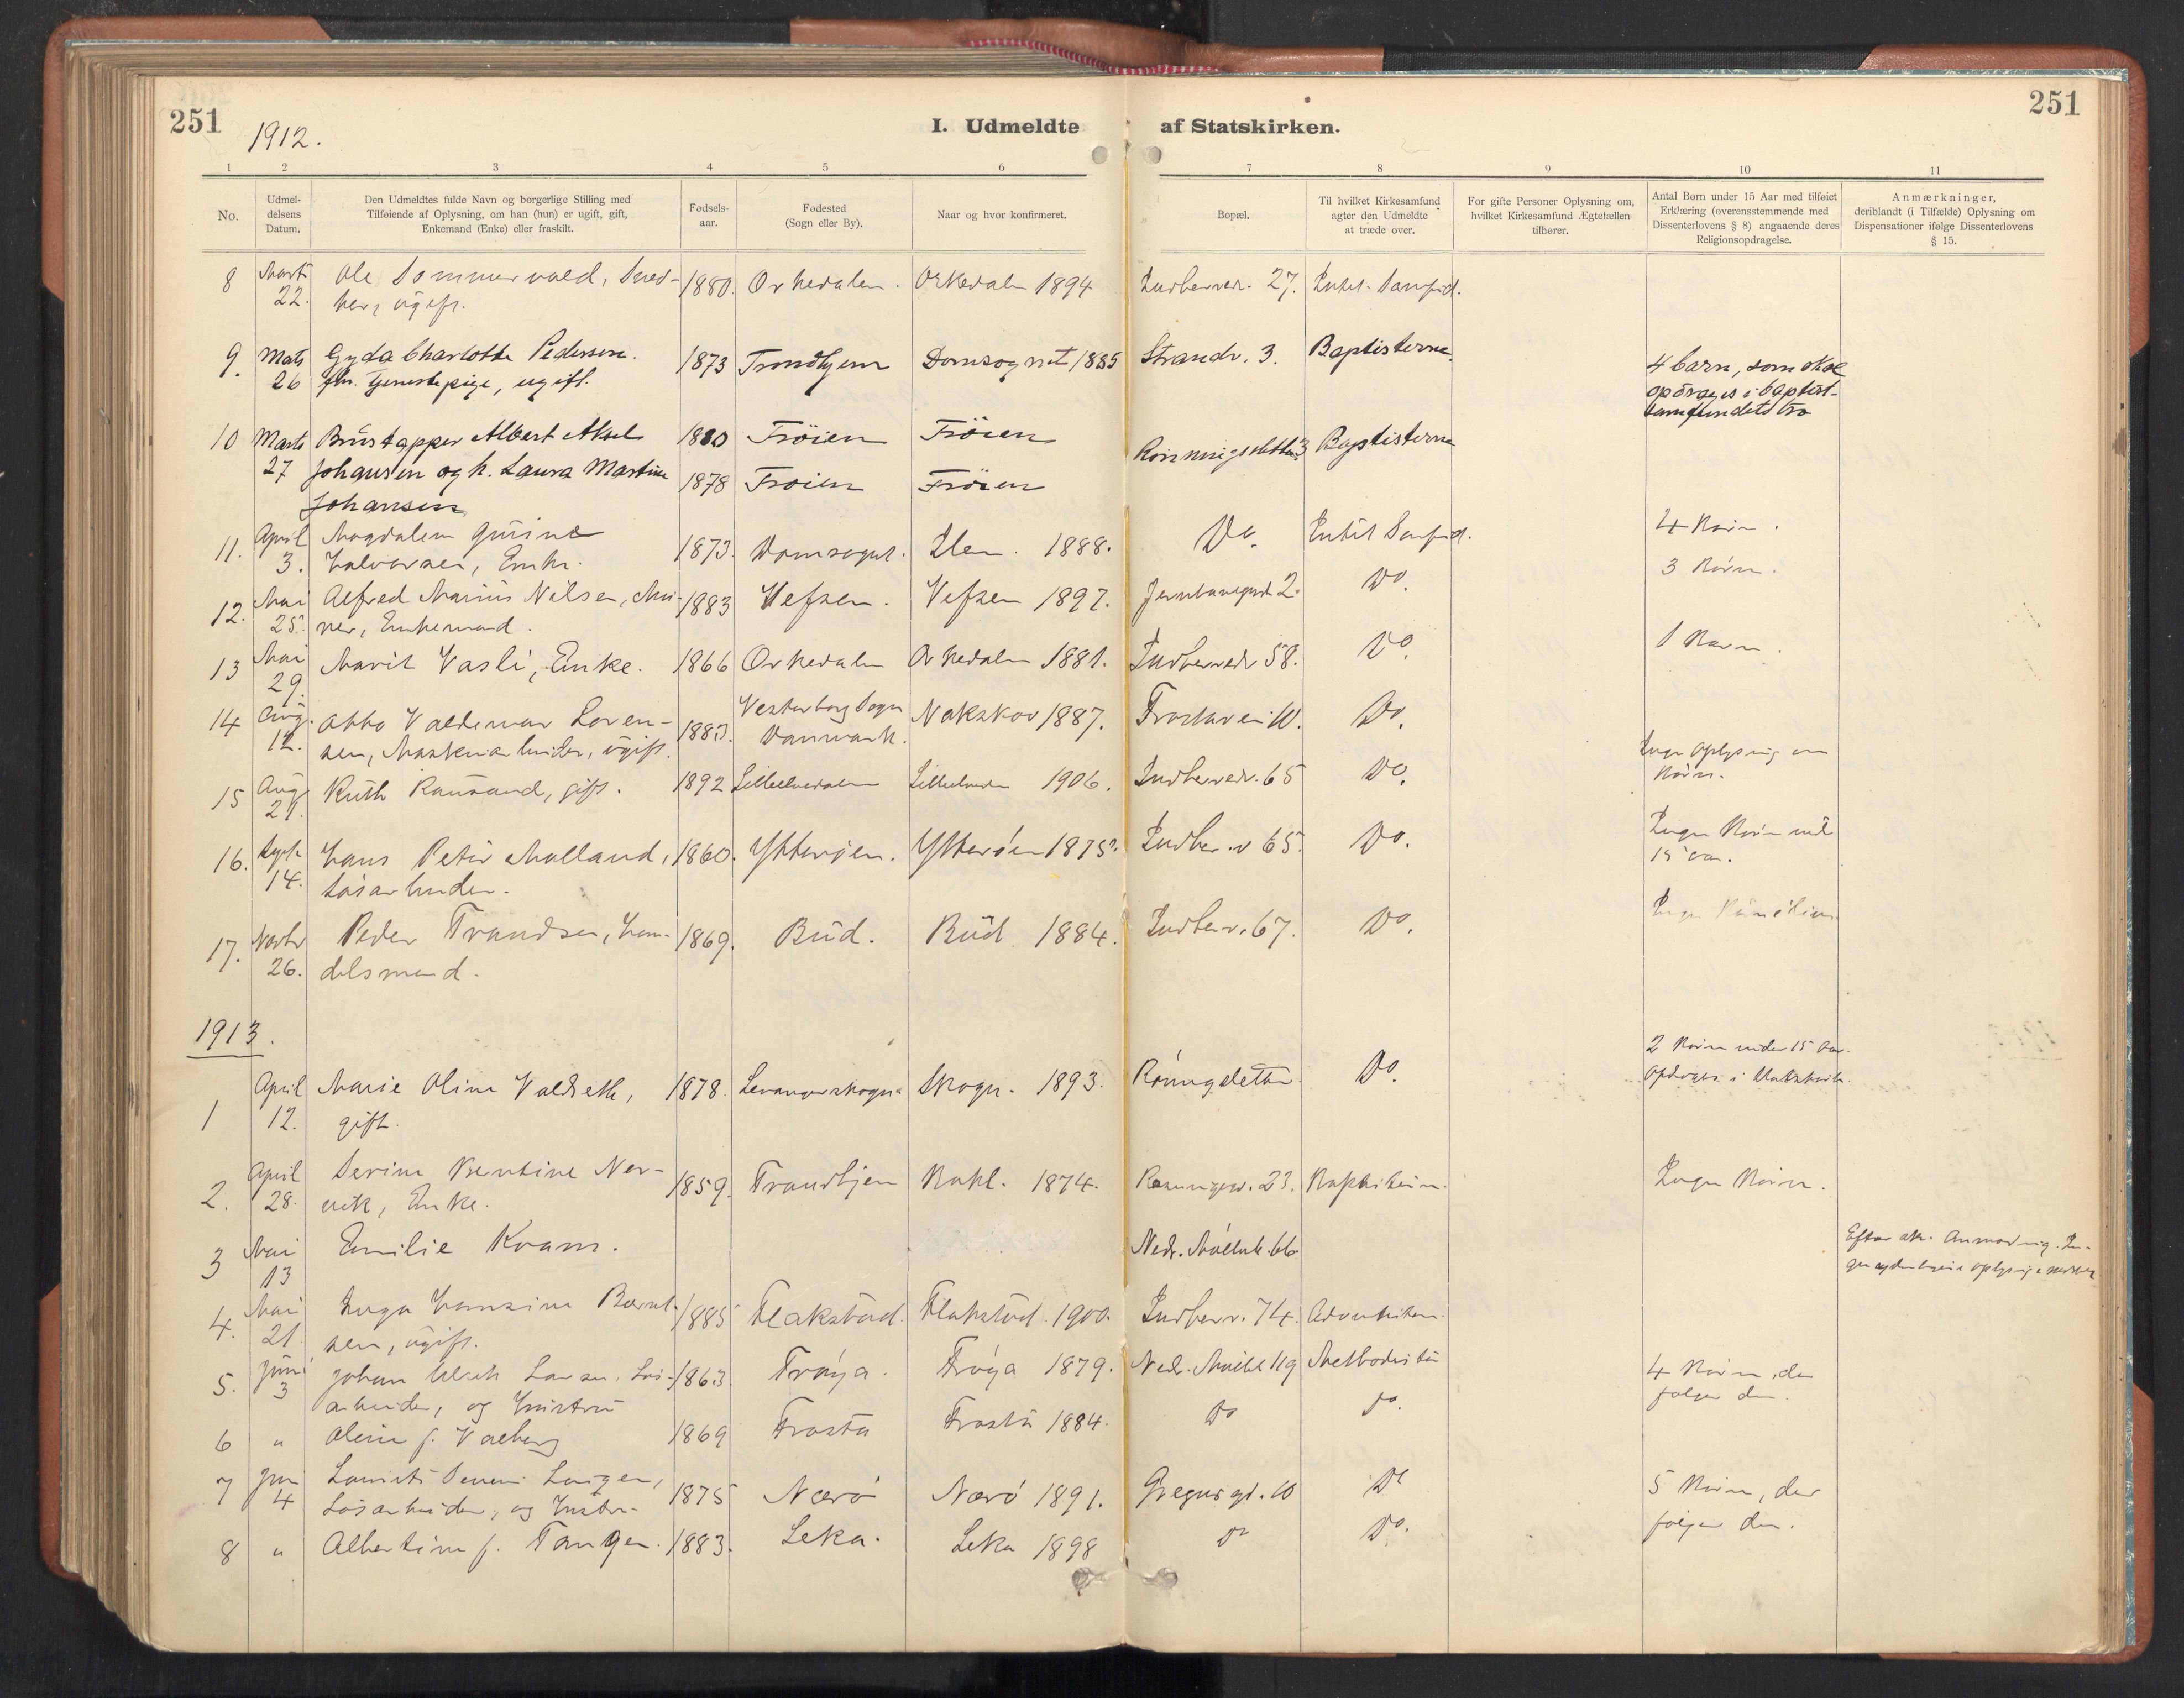 251
1912.
I. Udmeldte af Statskirken.
251
1 2 3 4 5 6 7 8 9 10 11
No.
Udmel-
delsens
Datum.
Den Udmeldtes fulde Navn og borgerlige Stilling med
Tilføiende af Oplysning, om han (hun) er ugift, gift,
Enkemand (Enke) eller fraskilt.
Fødsels-
aar.
Fødested
(Sogn eller By).
Naar og hvor konfirmeret.
Bopæl.
Til hvilket Kirkesamfund
agter den Udmeldte
at træde over.
For gifte Personer Oplysning om,
hvilket Kirkesamfund Ægtefællen
tilhører.
Antal Børn under 15 Aar med tilføiet
Erklæring (overensstemmende med
Dissenterlovens § 8) angaaende deres
Religionsopdragelse.
Anmærkninger,
deriblandt (i Tilfælde) Oplysning om
Dispensationer ifølge Dissenterlovens
§ 15.
8 Marts Ole Sommervold, Sned- 1880. Orkedalen. Orkedalen 1894 Indherredv. 27. Intet Samfd.
22. ker, ugift.
9. Marts Gyda Charlotte Pedersen. 1873 Trondhjem Domsognet 1885 Strandv. 3. Baptisterne.
26 fhv. tjenestepige, ugift.
4 barn, som skal
opdrages i baptist-
samfundets tro
10 Marts Albert Aksel 1880 Frøien Frøien Rønningsletta 3 Baptisterne
27 Johansen og h. Laura Martine 1878 Frøien Frøien
Johansen
11. April Magdalena Gurine 1873. Domsognet. Ilen. 1888. Do. Intet Samfd. 4 Børn.
3. Halvorsen, Enke.
12. Mai Alfred Marius Nilsen, Mu- 1883 Vefsen. Vefsen 1897. 2. Do. 3 Børn.
25. rer, Enkemand.
13 Mai Marit Vasli, Enke. 1866 Orkedalen Orkedalen 1881. Indherredv 58. Do. 1 Barn.
29.
14 Aug. Otto Valdemar Loren- 1883. Vesterborg Sogn Nakskov 1887. 10. Do.
12. sen, Maskinarbeider, ugift. Danmark.
15 Aug Ruth Rausand, gift. 1892 Lilleelvedalen Lilleelvedalen 1906. Indherredv. 65 Do.
21.
Ingen Oplysning om
Børn.
16. Septr Hans Peter Molland, 1860. Ytterøen. Ytterøen 1875. Indher.v 65. Do.
14. Løsarbeider.
Ingen Børn und.
15 Aar.
17. Novbr Peder Trandsen, Han- 1869. Bud. Bud. 1884. Indherv. 67. Do. Ingen
26. delsmand.
1913.
1 April Marie Oline Valdseth, 1878. Levangerskogn Skogn. 1893. Rønningsletten Do.
12. gift.
2 Børn under 15 Aar.
opdrages i Statskirk.
2. April Serine Berntine Ner- 1859. Trondhjem Bakl. 1874. 23. Baptisterne. Ingen Børn.
28. vik, Enke.
3 Mai Emilie Kvam. Nedr. Møllenb. 66.
13
Efter
4. Mai Inga Hansine Bernt- 1885 Flakstad. Flakstad. 1900. Indherv. 74. Adventisterne.
21 sen, ugift.
5. Juni Johan Ulrik Larsen, Løs- 1863. Frøya. Frøya 1879. Nedr. Møllenb 119 Methodister
3 arbeider, og Hustru
4 Børn, der
følger dem.
6 " Oline f. Valberg 1869 Frosta Frosta 1884. Do Do.
7 Juni 1875 Nærø Nærø 1891. Gregusgd. 10 Do
4 Løsarbeider, og Hustru
5 Børn, der
følger dem.
8 " Albertine f. Tangen. 1883. Leka. Leka 1898 Do Do.